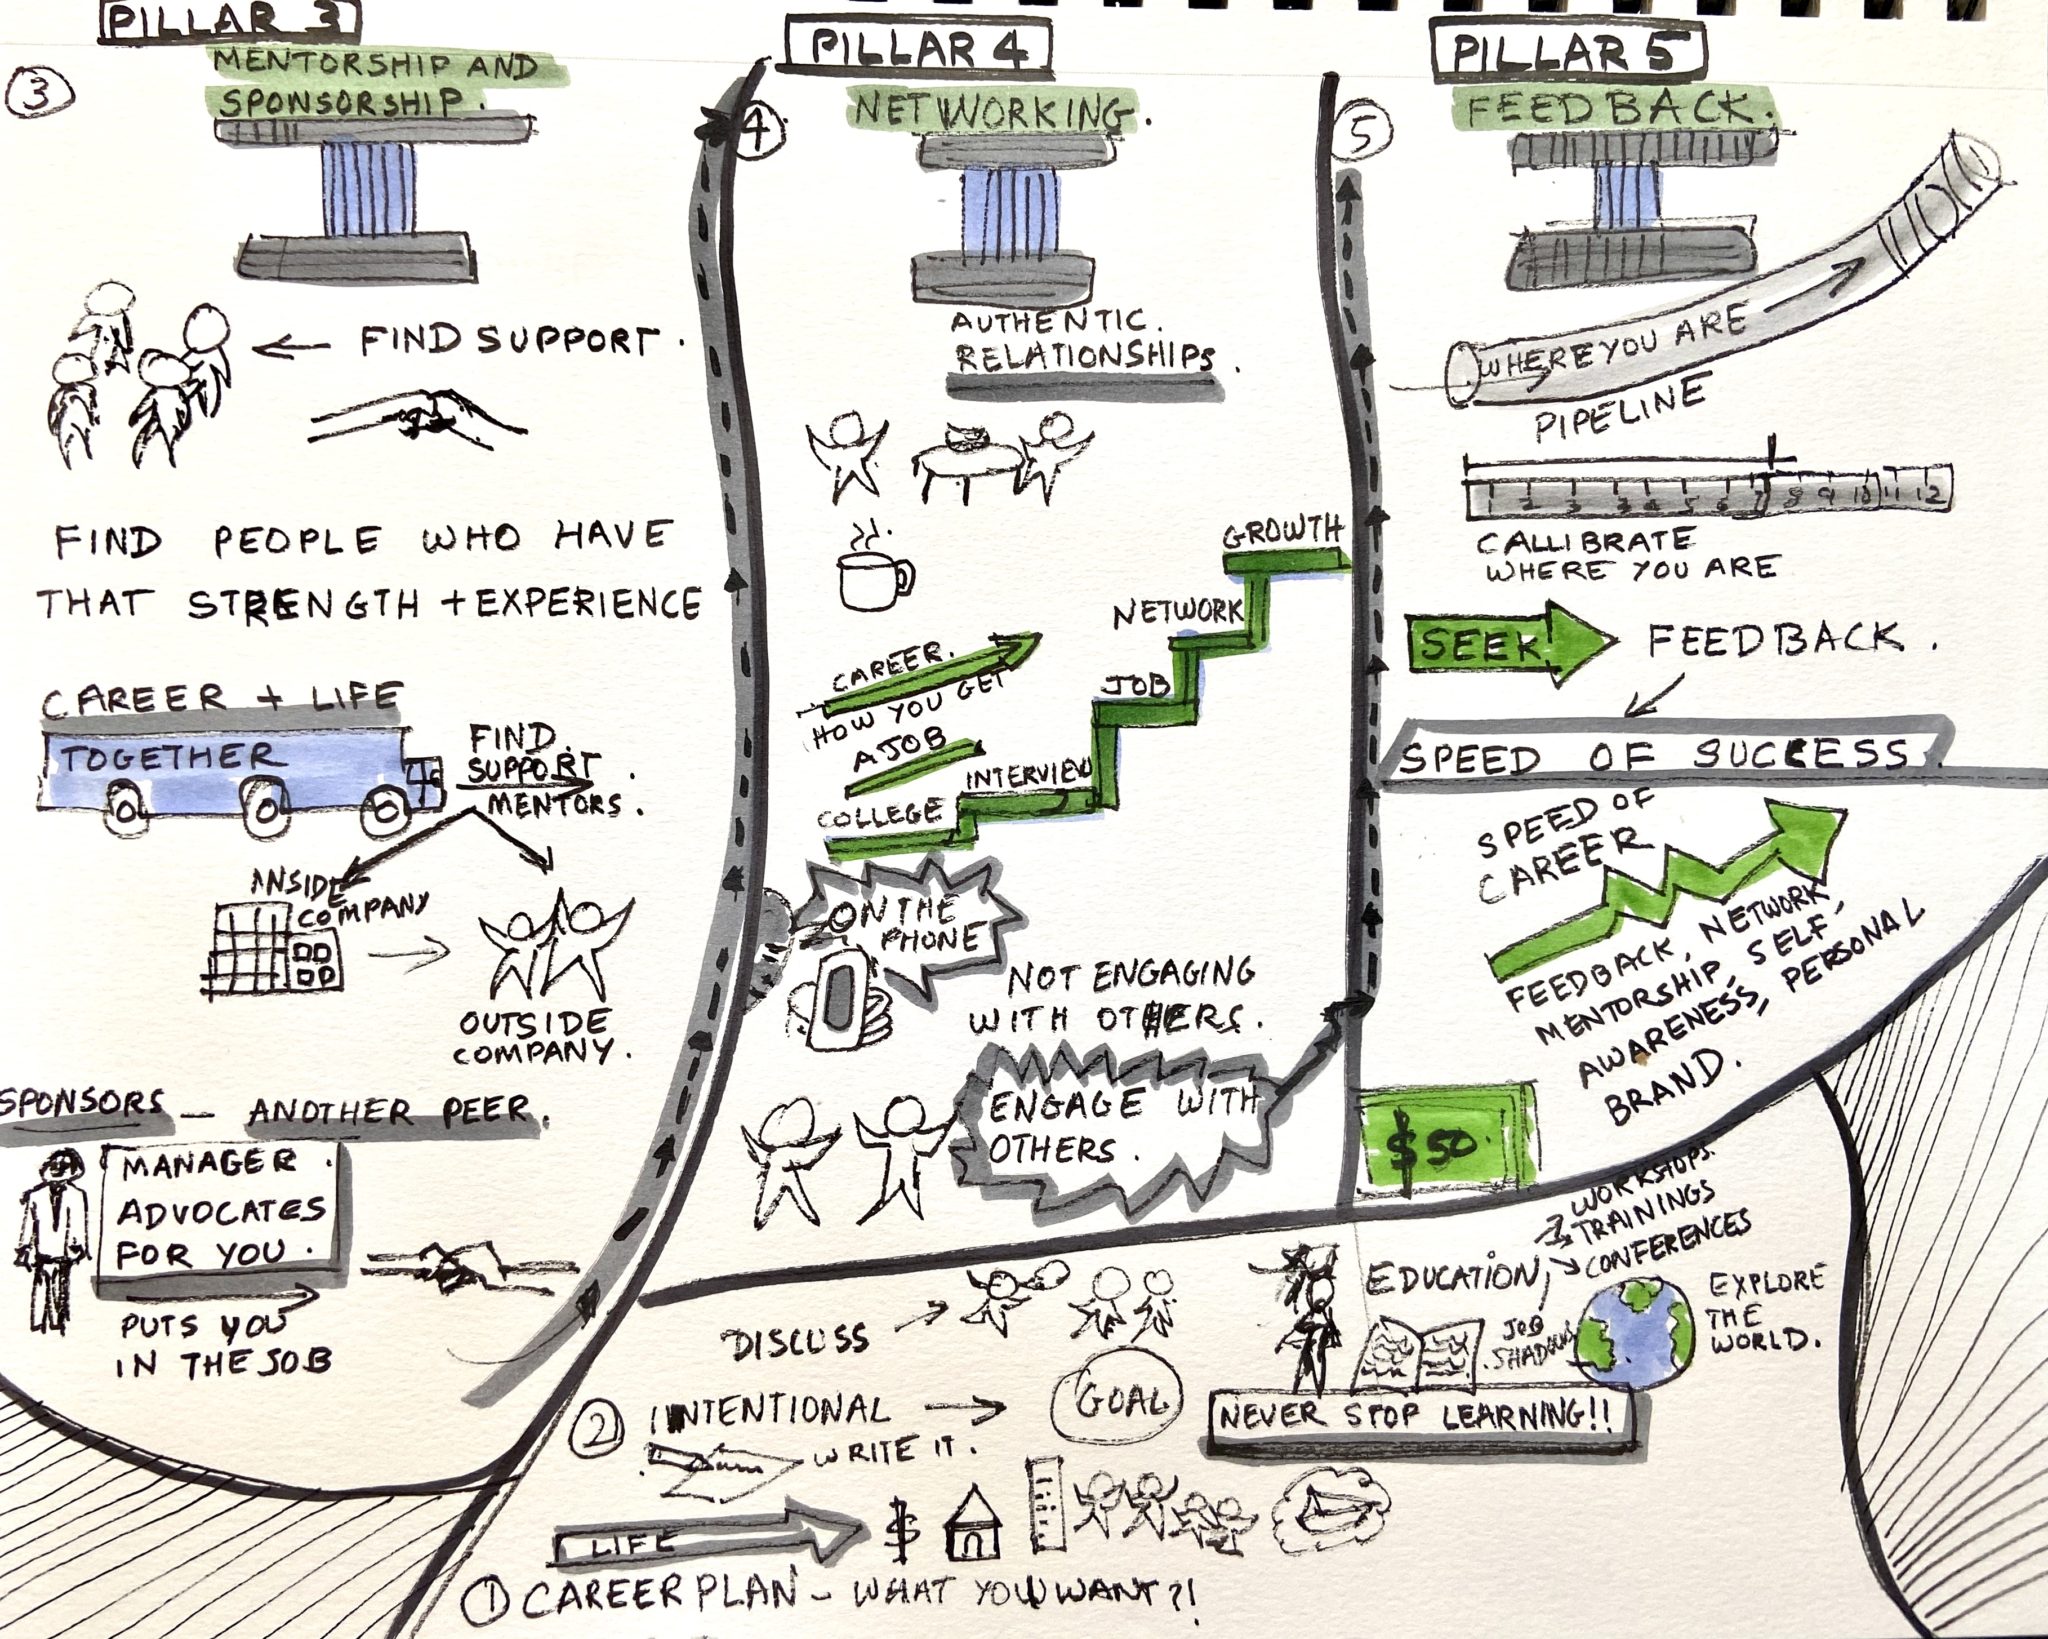 PILLAR 3
3
MENTORSHIP AND
SPONSORSHIP.
FIND SUPPORT.
FIND PEOPLE WHO HAVE
THAT STRENGTH + EXPERIENCE
CAREER + LIFE
TOGETHER
FIND
SUPPORT.
MENTORS.
INSIDE
COMPANY
OUTSIDE
COMPANY.
SPONSORS - ANOTHER PEER.
MANAGER.
ADVOCATES
FOR YOU.
PUTS YOU
IN THE JOB
PILLAR 4
4
NETWORKING.
AUTHENTIC.
RELATIONSHIPS.
CAREER.
HOW YOU GET
A JOB
COLLEGE
INTERVIEW
JOB
NETWORK
GROWTH
ON THE
PHONE
NOT ENGAGING
WITH OTHERS.
ENGAGE WITH
OTHERS.
PILLAR 5
5
FEEDBACK.
WHERE YOU ARE
PIPELINE
1 2 3 3 4 5 6 7 8 9 10 11 12
CALLIBRATE
WHERE YOU ARE
SEEK FEEDBACK.
SPEED OF SUCCESS.
SPEED OF
CAREER
FEEDBACK, NETWORK,
MENTORSHIP, SELF,
AWARENESS, PERSONAL
BRAND.
$50.
DISCUSS
EDUCATION,
WORKSHOPS.
TRAININGS
CONFERENCES
JOB
EXPLORE
THE
WORLD.
2 INTENTIONAL
GOAL
WRITE IT.
NEVER STOP LEARNING!!
LIFE
$
1 CAREER PLAN - WHAT YOU WANT?!